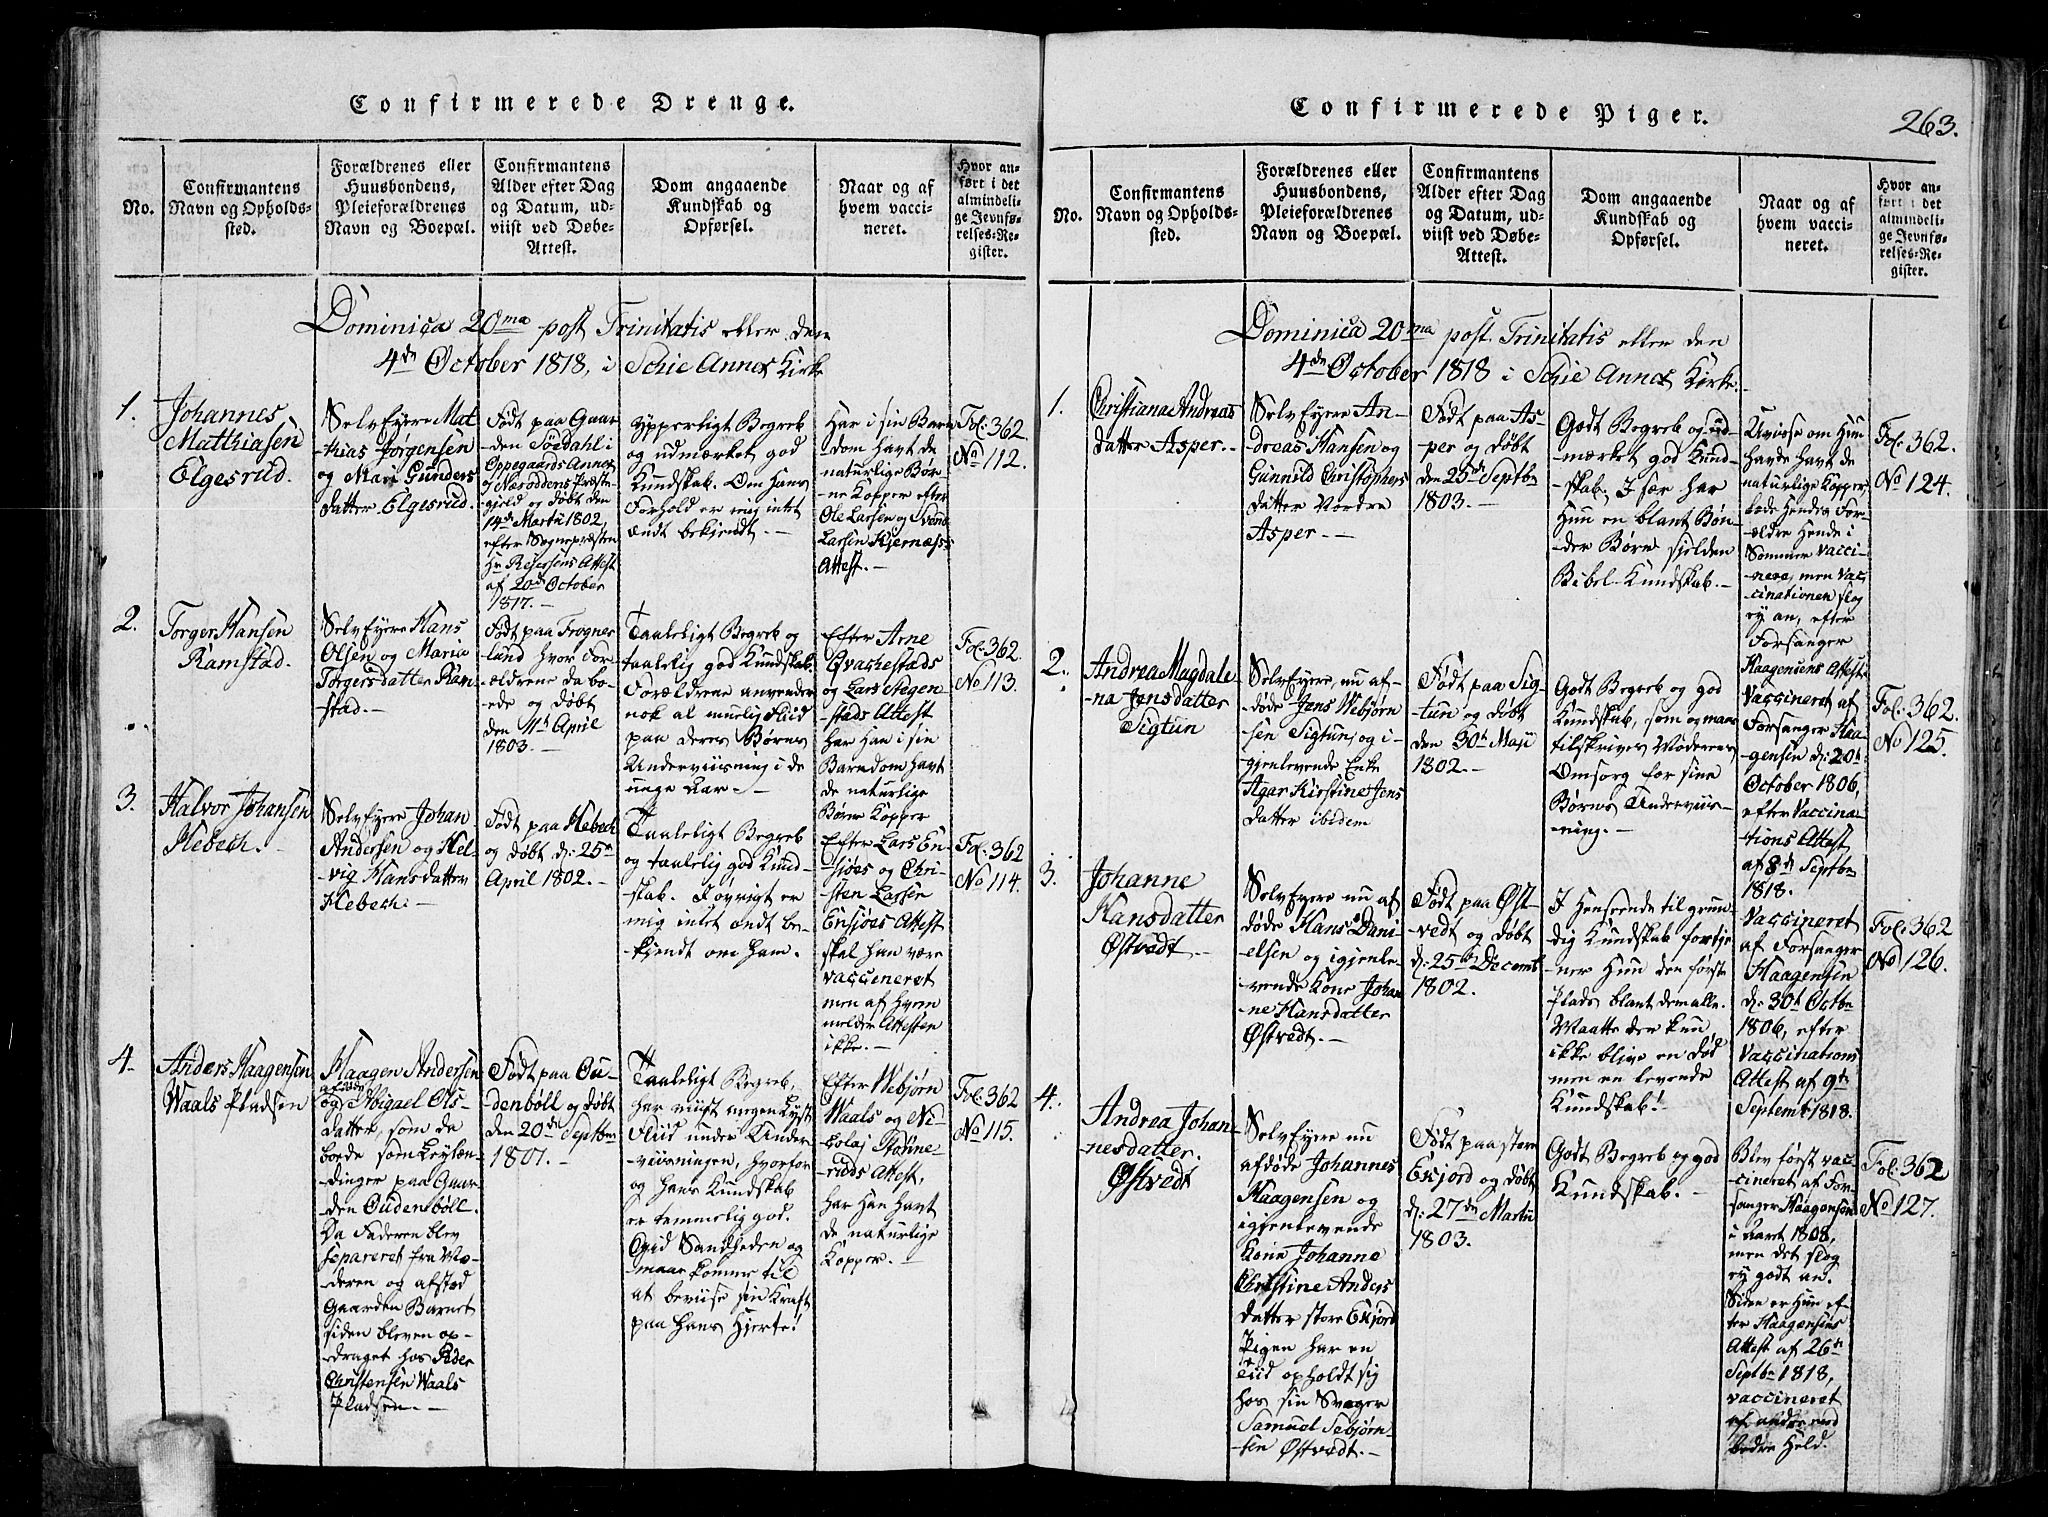 Confirmerede Drenge.
No.
Confirmantens
Navn og Opholds-
sted.
Forældrenes eller
Huusbondens,
Pleieforældrenes
Navn og Boepæl.
Confirmantens
Alder efter Dag
og Datum, ud-
viist ved Døbe-
Attest.
Dom angaaende
Kundskab og
Opførsel.
Naar og af
hvem vacci-
neret.
Hvor an-
ført i det
almindeli-
ge Jevnfø-
relses-Re-
gister.
Dominica 20ma post Trinitatis eller den
4de October 1818, i Schie Annex Kirke
1.
Johannes
Matthiasen
Elgesrud.
SelvEyere Mat
thias Jørgensen
og Mari Gunders
datter Elgesrud.
Født paa Gaar
den Södahl i
Oppegaards Annex
og Næsoddens Præste-
gjeld og døbt den
14de Martii 1802,
efter Sognepræsten
Hr attest
af 20de October
1817.-
Ypperligt Begreb
og udmærket god
Kundskab. Om hans
Forhold er mig intet
ondt bekjendt.-
Har i sin Barn
dom havt de
naturlige Bør-
ne Kopper efter
Ole Larsen og
Larsen Kjernæs
Attest.-
Fol: 362.
No 112.
2.
Torger Hansen
Ramstad.
SelvEyere Hans
Olsen og Maria
Torgersdatter Ram
stad.-
Født paa Frogner
land hvor For-
ældrene da bo-
ede og døbt
den 11te April
1803.-
Taaleligt Begreb og
taalelig god Kundskab.
Forældrene anvender
nok al muelig Fliid
paa deres Børns
Underviisning i de
unge Aar.-
Efter Arne
og Lars
stads Attest
har Han i sin
Barndom havt
de naturlige
Børne Kopper
Fol: 362.
No 113.
3.
Halvor Johansen
Hebech.-
SelvEyere Johan
Andersen og Hel-
vig Hansdatter
Hebech.-
Født paa Hebech
og døbt d: 25de
April 1802.-
Taaleligt Begreb
og taalelig god Kund
skab. I øvrigt er
mig intet ondt be-
kjendt om ham.
Efter Lars En-
sjøes og Chri-
sten Larsen
Ensjøes Attest
skal han være
vaccineret
men af hvem
melder Attesten
ikke.-
Fol: 362
No 114.
4.
Anders Haagensen
Waals Pladsen
Haagen Andersen
og Abigael Ols-
datter, som da
boede som Leylæn-
dinger paa Gaar
den Oudenböll.
Da Faderen blev
separeret fra Mo-
deren og afstod
Gaarden Barnet
siden bleven op-
draget hos Peder
Christensen Waals
Pladsen.-
Født paa Ou-
denböll og døbt
den 20de Septbr
1801.-
Taaleligt Begreb,
har viist megen Lyst
Fliid under Under
viisningen, hvorfor
og hans Kundskab
er temmelig god.
Gud Sandheden og
maae komme til
at beviise sin Kraft
paa hans Hjerte!
Efter Webjørn
Waals og Ni-
colaj
ruds Attest,
har Han havt
de naturlige
Kopper.-
Fol: 362
No 115.
Confirmerede Piger.
263.
No.
Confirmantens
Navn og Opholds-
sted.
Forældrenes eller
Huusbondens,
Pleieforældrenes
Navn og Boepæl.
Confirmantens
Alder efter Dag
og Datum, ud-
viist ved Døbe-
Attest.
Dom angaaende
Kundskab og
Opførsel.
Naar og af
hvem vacci-
neret.
Hvor an-
ført i det
almindeli-
ge Jevnfø-
relses-Re-
gister.
Dominica 20ma post Trinitatis eller den
4de October 1818 i Schie Annex Kirke
1.
Christiana Andreas
datter Asper.-
SelvEyere An-
dreas Hansen og
Gunnild Christophers
datter Nordre
Asper.-
Født paa As-
per og døbt
den 25de Septbr
1803.-
Godt Begreb og ud-
mærket god Kund
skab. I sær har
Hun en blant Bøn-
der Børn sjelden
Bibel-Kundskab.-
Uvisse om Hun
havde havt de
naturlige Kopper,
lode Hendes For-
ældre Hende i
Sommer vacci-
nere, men Vac-
cinationen slog
ey an, efter
Forsanger
Haagensens Attest.
Fol: 362.
No 124.
2.
Andrea Magdale
na Jensdatter
Sigtun
SelvEyere, nu af-
døde Jens Webjørn
sen Sigtun, og i-
gjenlevende Enke
Agar Kirstine Jens
datter ibidem
Født paa Sig-
tun og døbt
den 30te Maji
1802.-
Godt Begreb og god
Kundskab, som og maae
tilskrives Moderens
Omsorg for sine
Børns Underviis-
ning.-
Vaccineret af
Forsanger Haa-
gensen d: 20de
October 1806,
efter Vaccina-
tions Attest
af 8de Septbr
1818.
Fol: 362.
No 125.
3.
Johanne
Hansdatter
Østvedt.-
SelvEyere nu af
døde Hans Dani
elsen og igjenle-
vende Kone Johan
ne Hansdatter
Østvedt.-
Født paa Øst-
vedt og døbt
d: 25de Decembr
1802.
I Henseende til grun
dig Kundskab fortje
ner Hun den første
Plads blant dem alle.
Maatte den kun
ikke blive en død
men en levende
Kundskab!-
Vaccineret
af Forsanger
Haagensen
d: 30te Octbr
1806, efter
Vaccinations
Attest af 9de
Septembr 1818.
Fol: 362
No 126.
4.
Andrea Johan
nesdatter.
Østvedt
SelvEyere nu
afdøde Johannes
Haagensen og
igjenlevende
Kone Johanne
Christine Anders
datter store Ekjord
Pigen har en
Tiid opholdt sig
hos sin Svoger
Samuel Sebjørn-
sen Østvedt.-
Født paa store
Ekjord og døbt
d: 27de Martii
1803.
Godt Begreb og god
Kundskab.-
Blev først vac-
cineret af For-
sanger Haagensen
i Aaret 1808,
men det slog
ey godt an.
Siden er Hun ef-
ter Haagensens
Attest af 26de
Septbr 1818,
vaccineret
med
bedre Held.
Fol: 362
No 127.